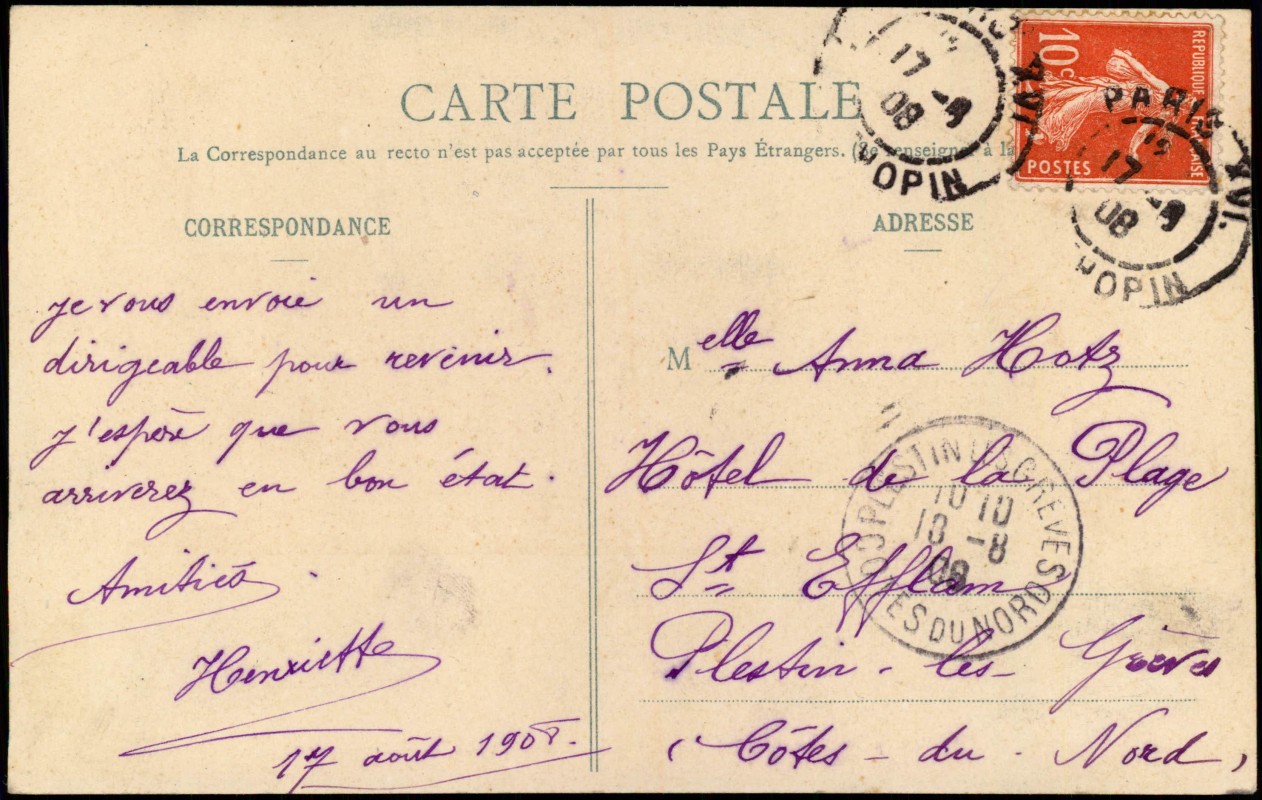 CARTE POSTALE
La Correspondance au recto n'est pas acceptée par tous les Pays Étrangers. (Se renseigner à la
CORRESPONDANCE
Je vous envoie un
dirigeable pour revenir.
J'espère que vous
arriverez en bon état.
Amitiés.
Henriette
17 août 1908.
10c
REPUBLIQUE FRANÇAISE
POSTES
17 -8
08
HOPIN
PARIS XVI.
17 -8
08
HOPIN
ADRESSE
Melle Anna Hotz
Hôtel de la Plage
St Efflam
Plestin-les-Grèves
(Côtes-du-Nord)
PLESTIN LES GREVES
10 10
18 -8
08
DU NORD